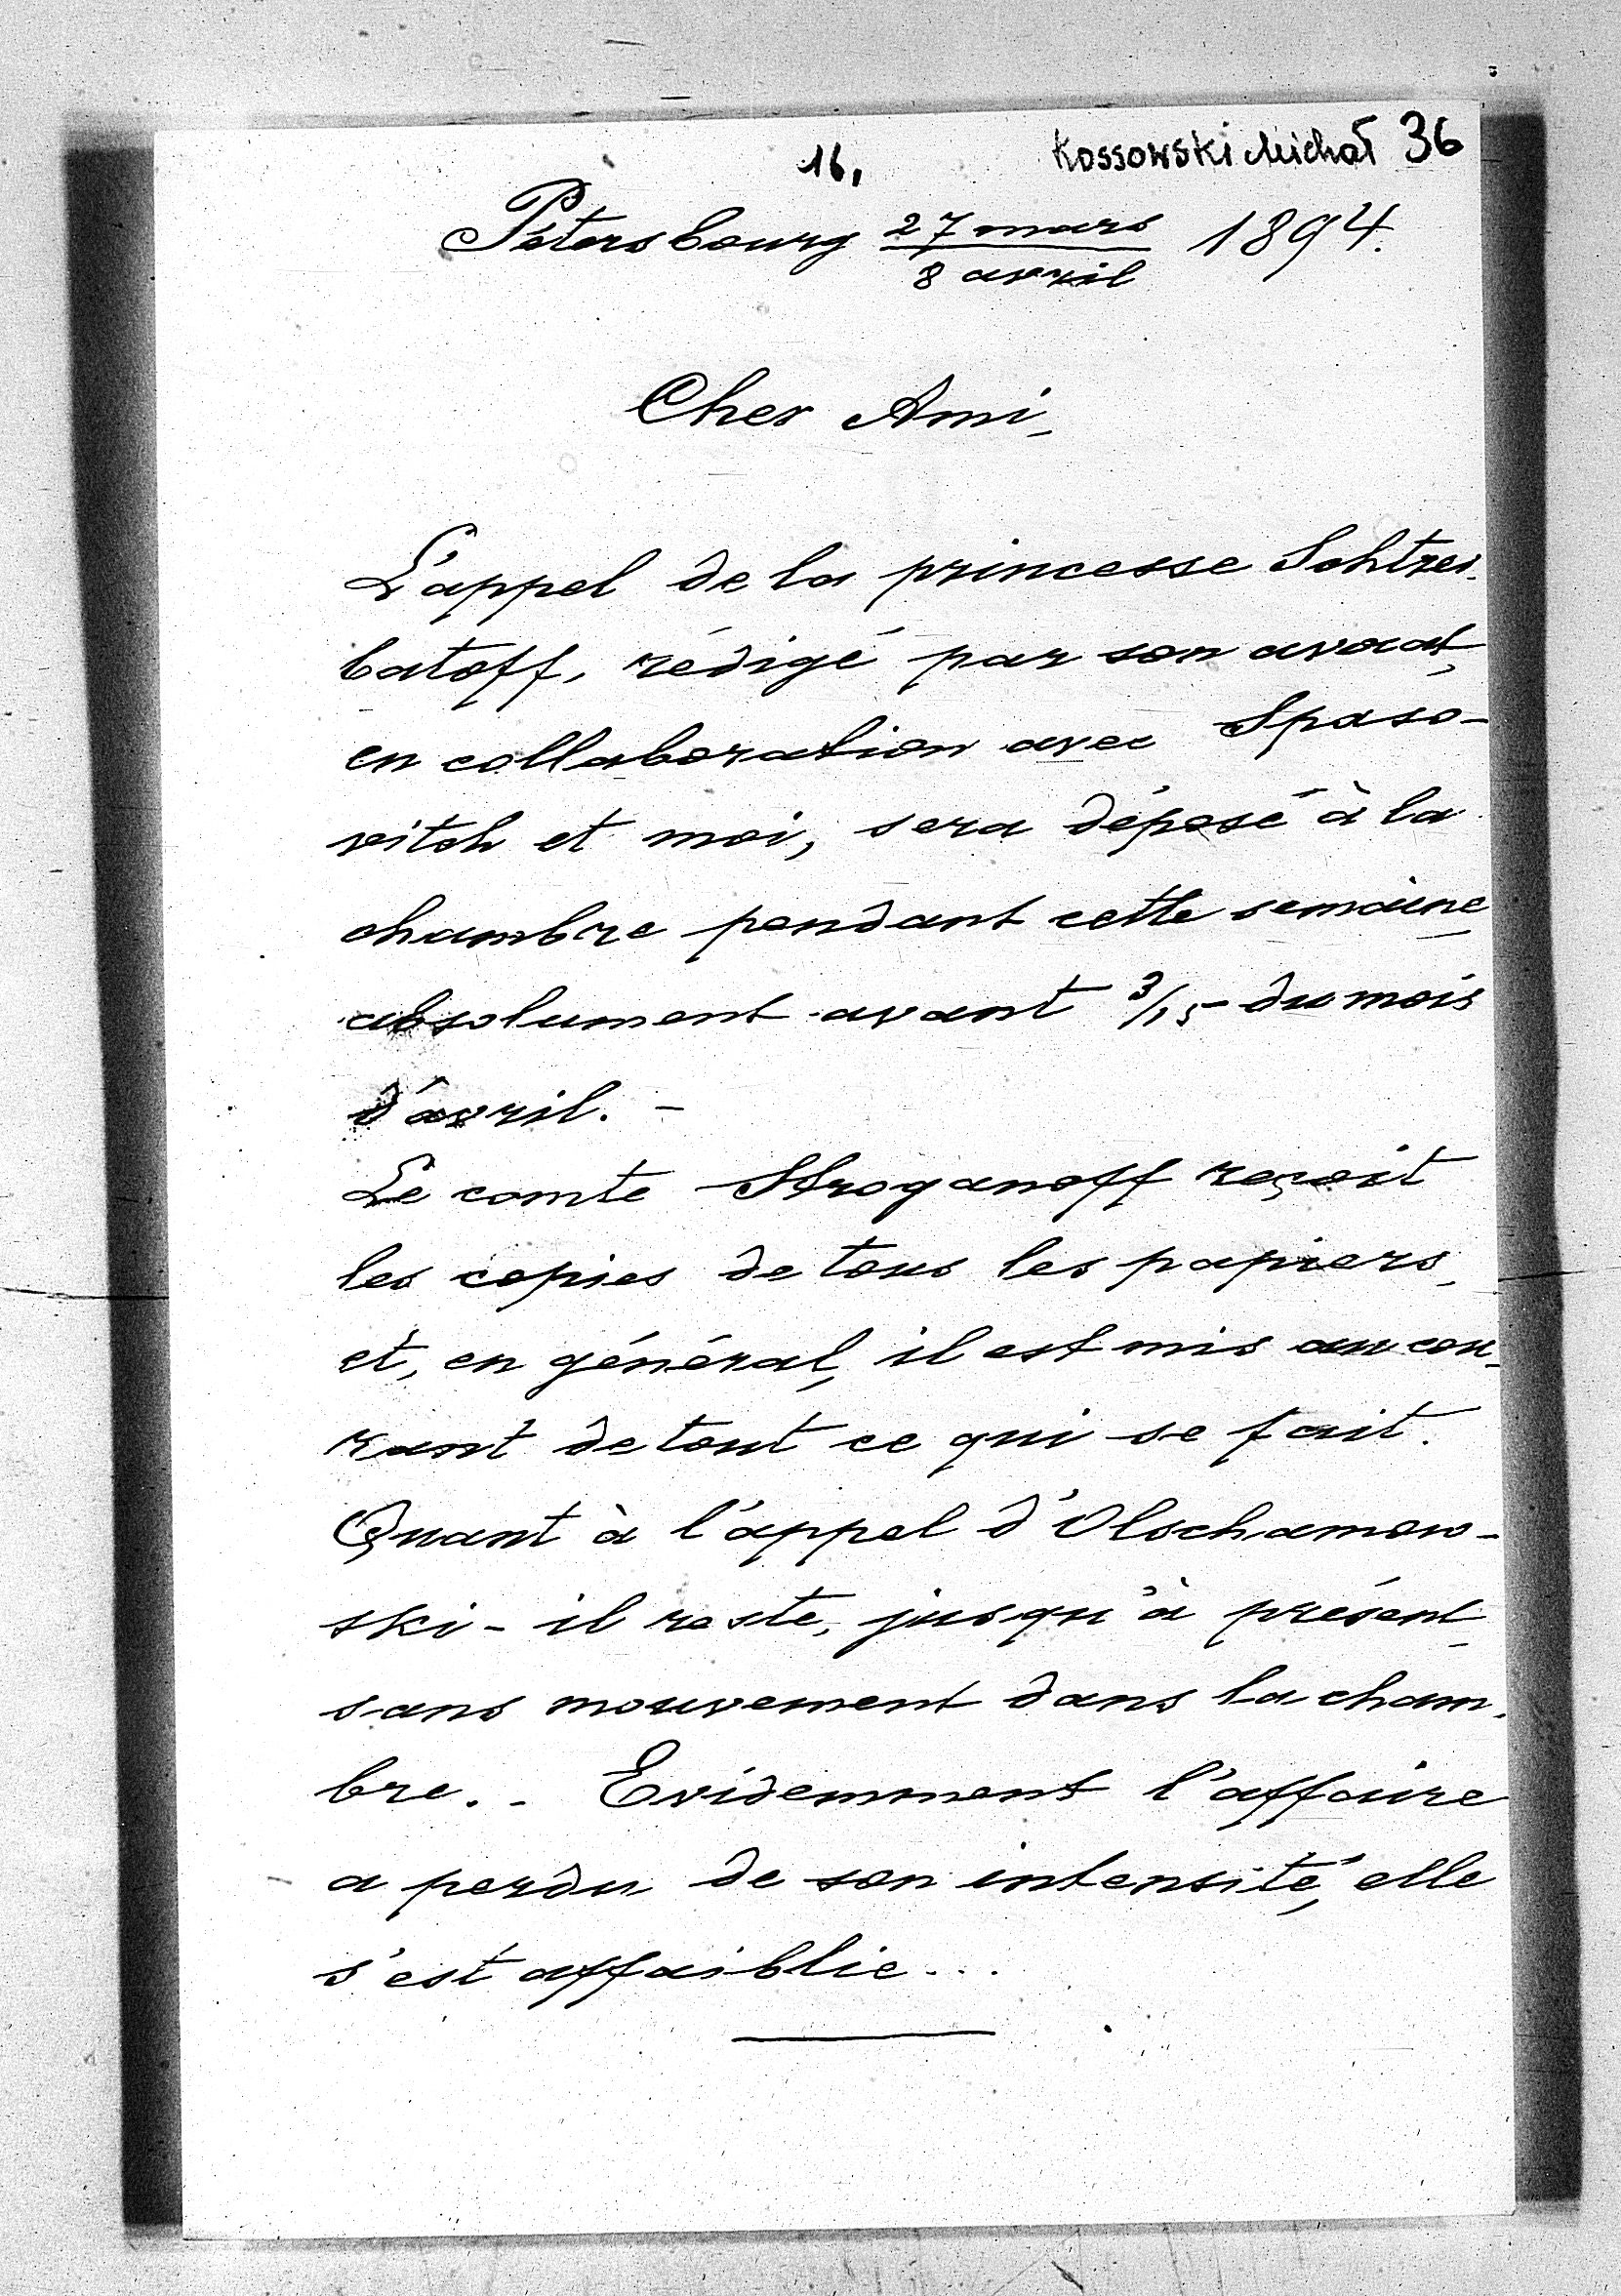 16, Kossowski Michał 36
Pétersbourg 27 mars / 8 avril 1894.
Cher Ami,
L'appel de la princesse Schtzer-
batoff, rédigé par son avocat,
en collaboration avec Spaso-
vitch et moi, sera déposé à la
chambre pendant cette semaine,
absolument avant 3/15 du mois
d'avril. -
Le comte Stroganoff reçoit
les copies de tous les papiers,
et, en général, il est mis au cou-
rant de tout ce qui se fait.
Quant à l'appel d'Olschamow-
ski - il reste, jusqu'à présent,
sans mouvement dans la cham-
bre. - Evidemment l'affaire
a perdu de son intensité, elle
s'est affaiblie...